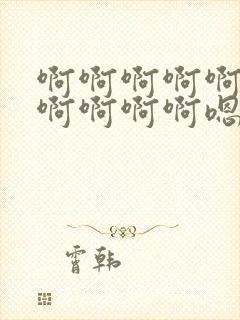 啊啊啊啊啊
啊啊啊啊嗯
霄韩